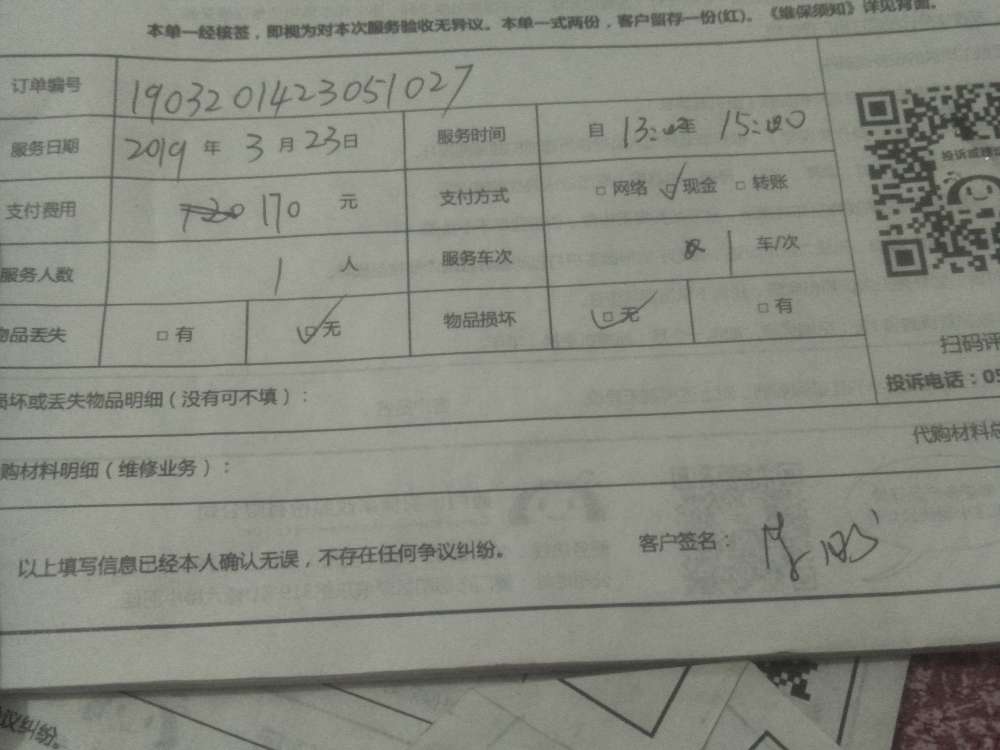 本单一经核签，即视为对本次服务验收无异议。本单一式两份，客户留存一份(红)。《维保须知》详见背面。
订单编号 1903201423051027
服务日期 2019 年 3 月 23 日 服务时间 自 13:00 至 15:00
支付费用 170 元 支付方式 □ 网络 ☑ 现金 □ 转账
服务人数 1 人 服务车次 1 车/次
物品丢失 □ 有 ☑ 无 物品损坏 ☑ 无 □ 有
扫码评
损坏或丢失物品明细（没有可不填）：
投诉电话：05
代购材料总
购材料明细（维修业务）：
以上填写信息已经本人确认无误，不存在任何争议纠纷。 客户签名：
议纠纷。